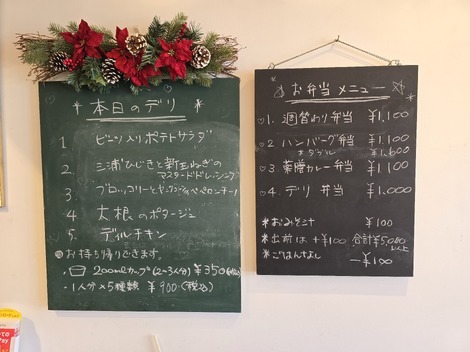 ＊本日のデリ＊
1 ビーンズ入りポテトサラダ
2 三浦ひじきと新玉ねぎの
マスタードドレッシング
3 ブロッコリーと
ペペロンチーノ
4 大根のポタージュ
5. ディルチキン
お持ち帰りできます。
・200mlカップ(2〜3人分) ¥350(税込)
・1人分×5種類 ¥900(税込)
☆お弁当メニュー☆
♡1. 週替わり弁当 ¥1,100
♡2 ハンバーグ弁当 ¥1,100
＊ダブル ¥1,600
♡3. 薬膳カレー弁当 ¥1,100
♡4. デリ弁当 ¥1,000
＊おみそ汁 ¥100
＊出前は+¥100 合計¥5,000
以上
＊ごはんなし -¥100